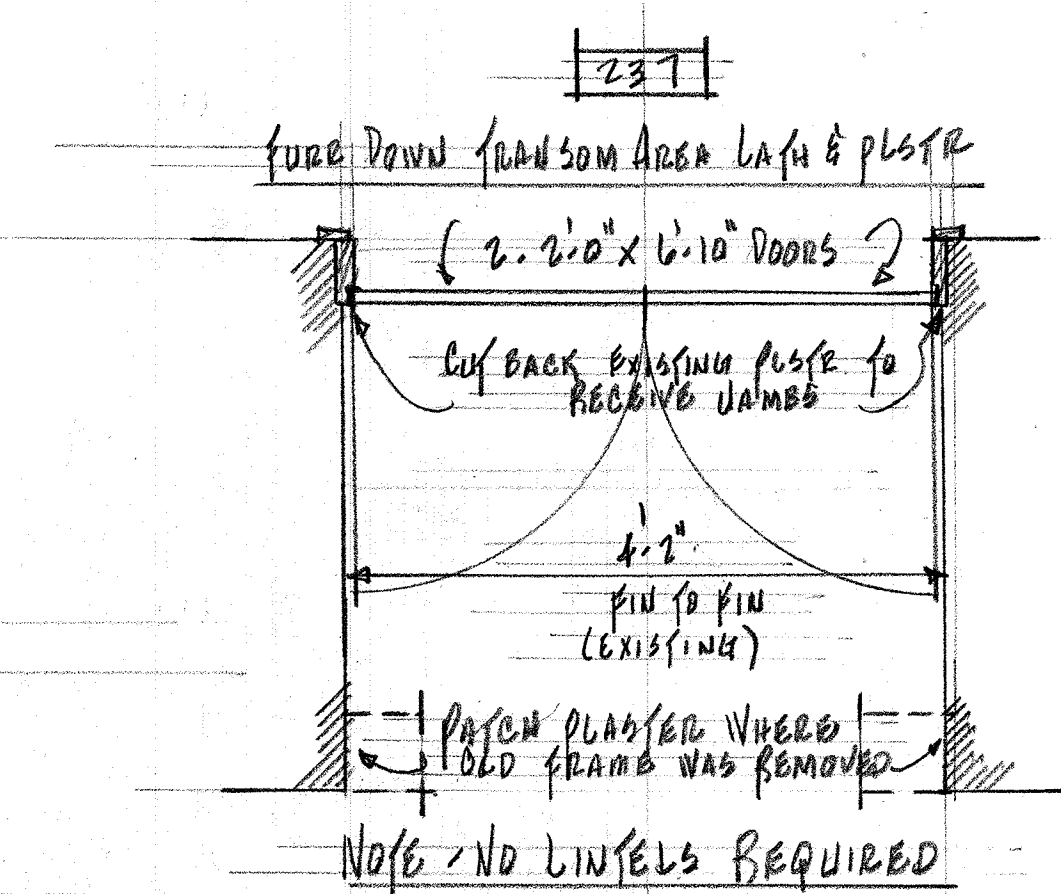 237
FURR DOWN TRANSOM AREA LATH & PLSTR
2-2'-0" X 6'-10" DOORS
CUT BACK EXISTING PLSTR TO
RECEIVE JAMBS
4'-2"
FIN TO FIN
(EXISTING)
PATCH PLASTER WHERE
OLD FRAME WAS REMOVED
NOTE - NO LINTELS REQUIRED